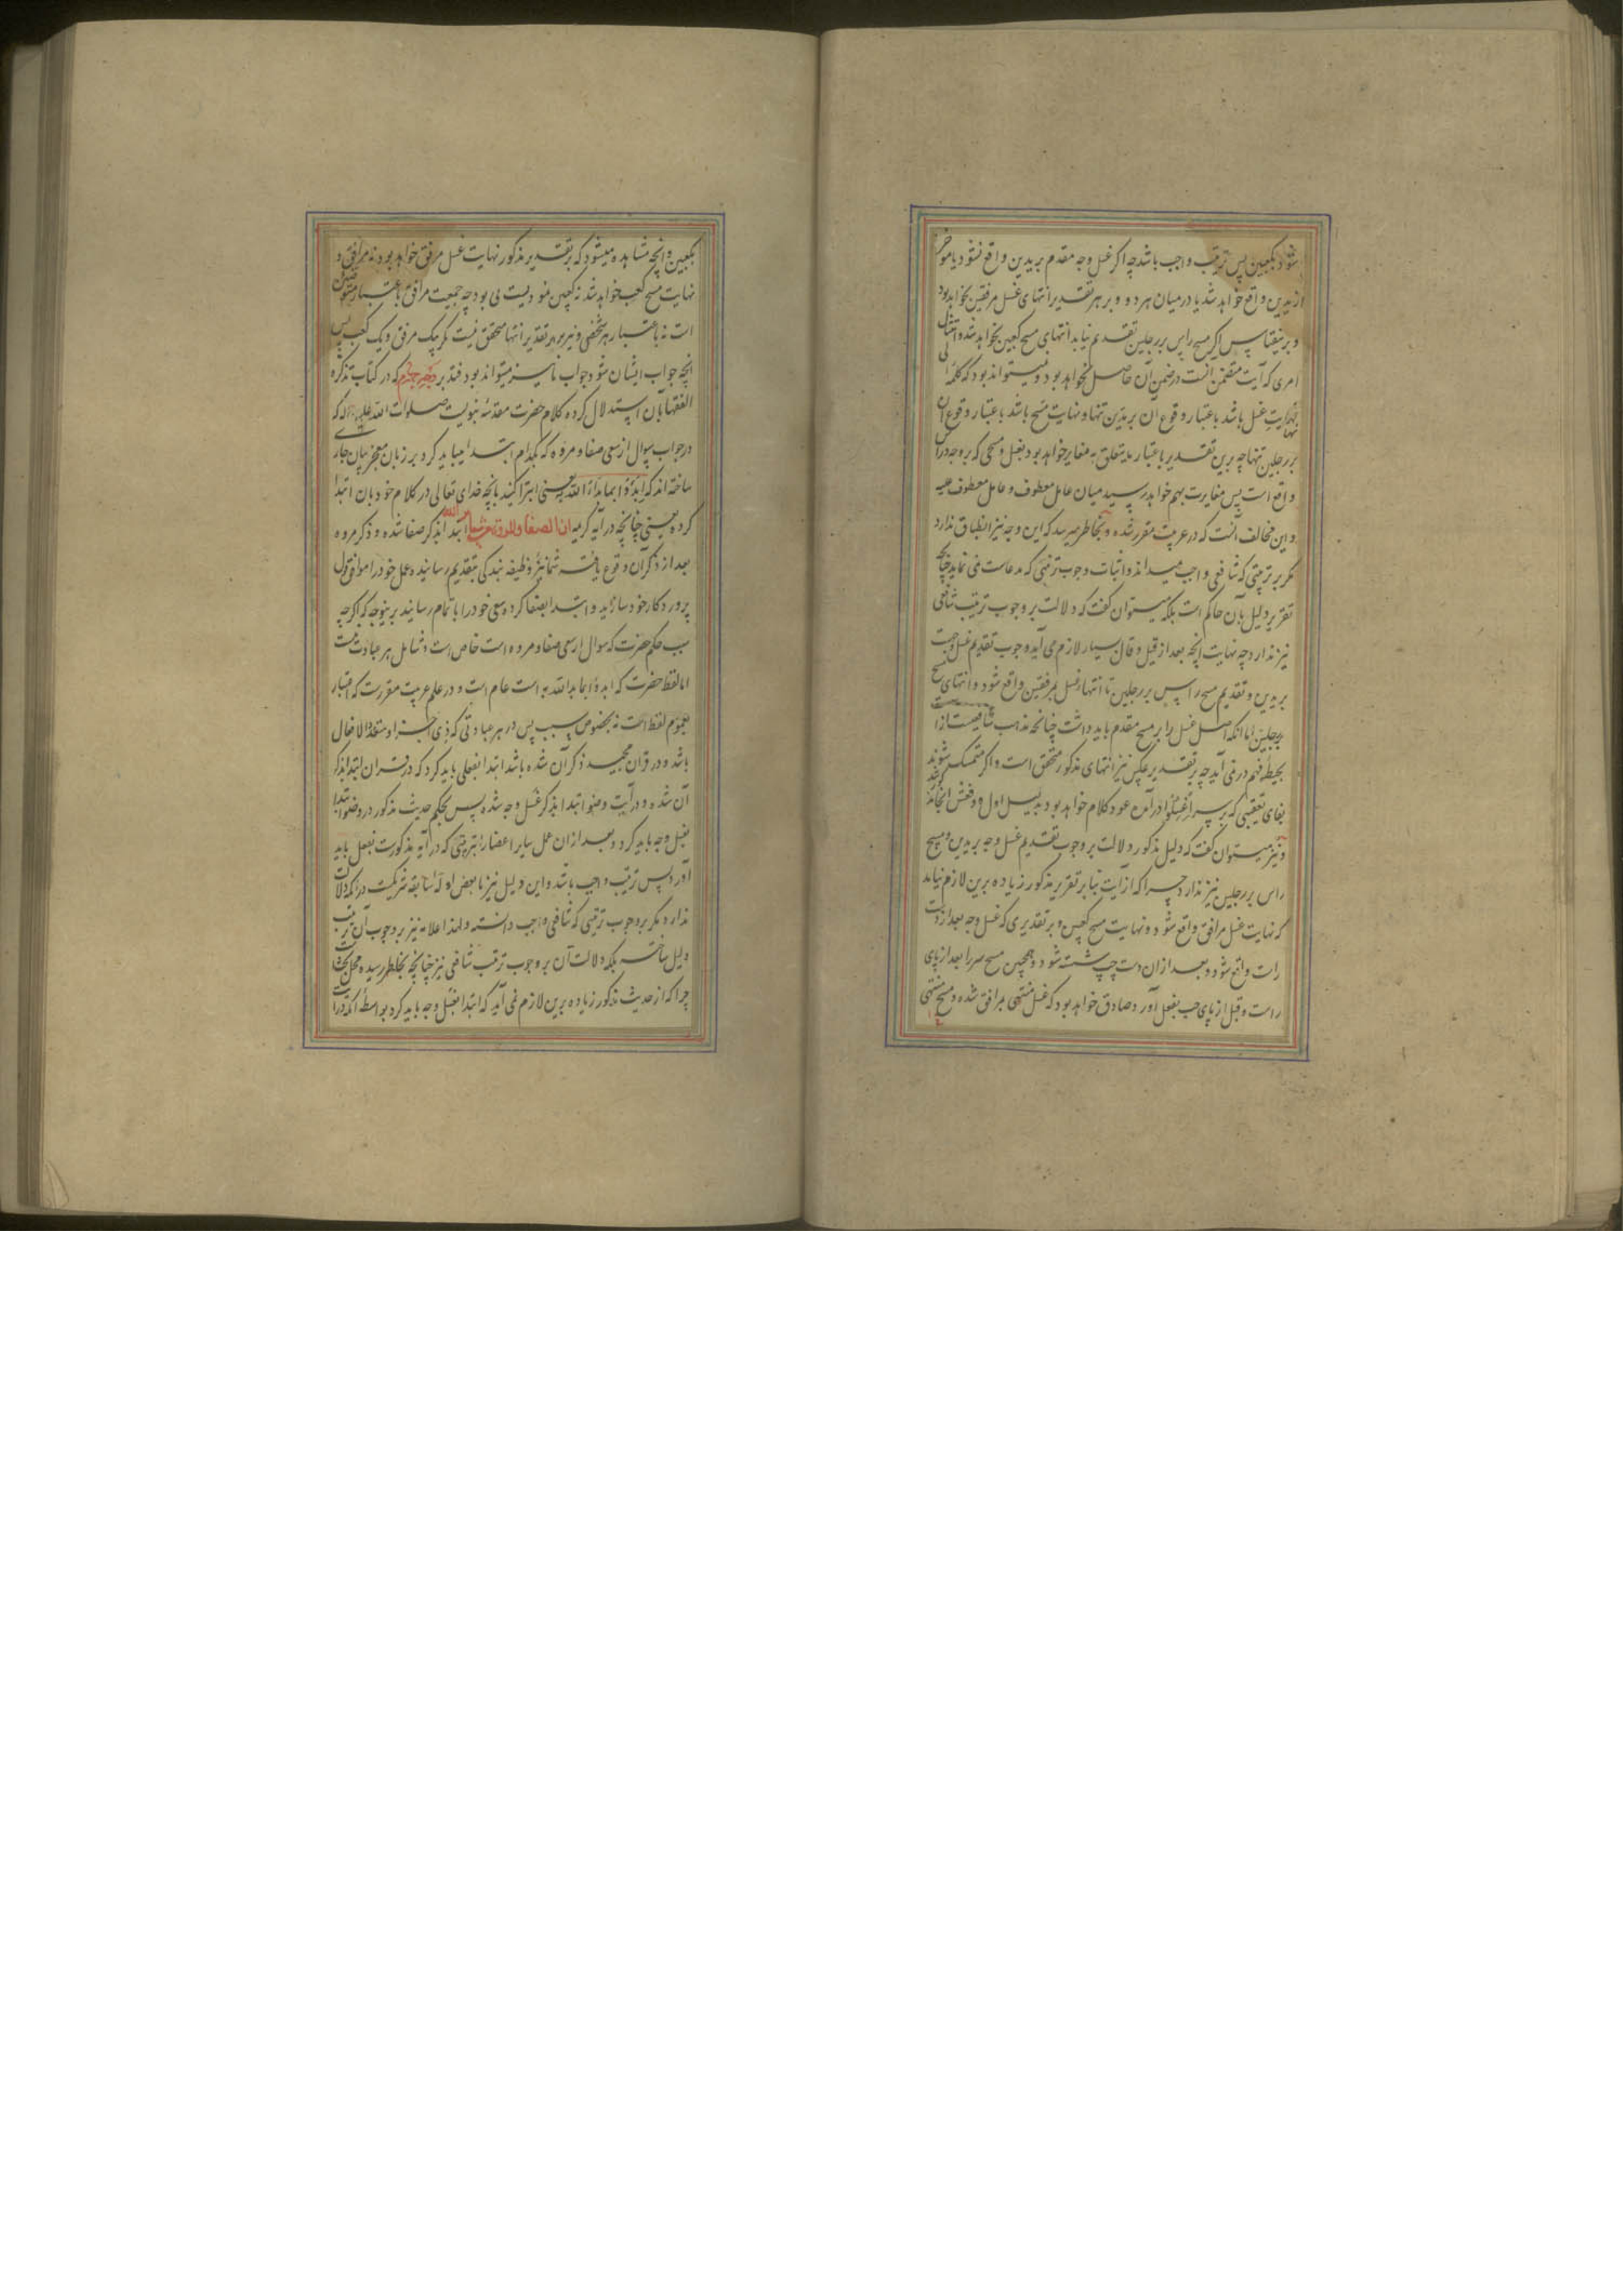 شود بکعبین پس ترتیب واجب باشد چه اگر غسل وجه مقدم بریدین واقع نشود یا موخر
از یدین واقع خواهد شد یا درمیان هر دو و بر هر تقدیر انتهای غسل مرفقین نخواهد بود
و برینقیاس اگر مسح راس بر رجلین تقدیم نیابد انتهای مسح کعبین نخواهد شد و امتثال
امری که آیت متضمن آنست در ضمن آن حاصل نخواهد بود و میتواند بود که کلمه الی
نهایت غسل باشد باعتبار وقوع آن بریدین تنها و نهایت مسح باشد باعتبار وقوع آن
بر رجلین تنها چه برین تقدیر باعتبار ما یتعلق به مغایر خواهد بود بغسل و مسحی که بر وجه و راس
واقع است پس مغایرت بهم خواهد رسید میان عامل معطوف و عامل معطوف علیه
و این مخالف آنست که در عربیت مقرر شده و بخاطر میرسد که این وجه نیز انطباق ندارد
مکر بر ترتیبی که شافعی واجب میداند و اثبات وجوب ترتیبی که مدعاست نمی نماید چنانچه
تقریر دلیل بآن حاکم است بلکه میتوان گفت که دلالت بر وجوب ترتیب شافعی
نیز ندارد چه نهایت آنچه بعد از قیل و قال بسیار لازم می آید وجوب تقدیم غسل وجه است
بریدین و تقدیم مسح راس بر رجلین تا انتهاء غسل بمرفقین واقع شود و انتهای مسح
برجلین اما آنکه اصل غسل را بر مسح مقدم باید داشت چنانچه مذهب شافعیست از آن
بحیطه فهم در نمی آید چه بر تقدیر عکس نیز انتهای مذکور متحقق است و اگر متمسک شوند
بفای تعقیبی که بر سر اغسلوا در آمده عود کلام خواهد بود بدلیل اول و دفعش انجامد
و نیز میتوان گفت که دلیل مذکور دلالت بر وجوب تقدیم غسل وجه بریدین و مسح
راس بر رجلین نیز ندارد چرا که از آیت بنابر تقریر مذکور زیاده برین لازم نیاید
که نهایت غسل مرافق واقع شود و نهایت مسح کعبین و بر تقدیری که غسل وجه بعد از دست
راست واقع شود و بعد از آن دست چپ شسته شود و همچنین مسح سر را بعد از پای
راست و قبل از پای چپ بفعل آورد صادق خواهد بود که غسل منتهی بمرافق شده و مسح منتهی
بکعبین و آنچه مشاهده میشود که بر تقدیر مذکور نهایت غسل مرفق خواهد بود نه مرافق و
نهایت مسح کعب خواهد شد نه کعبین منودیست بی بود چه جمعیت مرافق باعتبار متوضین
است نه باعتبار هر شخصی و نیز بر هر تقدیر انتها متحقق نیست مکر بیک مرفق و یک کعب پس
آنچه جواب ایشان شود جواب ما نیز میتواند بود فتدبر دلیل چهارم که در کتاب تذکره
الفقها بآن استدلال کرده کلام حضرت مقدسه نبویست صلوات الله علیه و آله که
در جواب سوال از سعی صفا و مروه که بکدام ابتدا میباید کرد بر زبان معجز بیان جاری
ساخته اند که ابدؤا بما بدأ الله به یعنی ابتدا کنید بانچه خدای تعالی در کلام خود بان ابتدا
کرده یعنی چنانچه در آیه کریمه ان الصفا والمروة من شعائر الله ابتدا بذکر صفا شده و ذکر مروه
بعد از ذکر آن وقوع یافته شما نیز وظیفه بندکی بتقدیم رسانیده عمل خود را موافق قول
پروردکار خود سازید و ابتدا بصفا کرده سعی خود را باتمام رسانید برینوجه که اگر چه
سبب حکم حضرت که سوال از سعی صفا و مروه است خاص است و شامل هر عبادت نیست
اما لفظ حضرت که ابدؤا بما بدا الله به است عام است و در علم عربیت مقررست که اعتبار
بعموم لفظ است نه بخصوص سبب پس در هر عبادتی که ذی اجزاء و متعدد الافعال
باشد و در قرآن مجید ذکر آن شده باشد ابتدا بفعلی باید کرد که در قرآن ابتدا بذکر
آن شده و در آیت وضو ابتدا بذکر غسل وجه شده پس بحکم حدیث مذکور در وضو ابتدا
بغسل وجه باید کرد و بعد از ان عمل سایر اعضا را بترتیبی که در آیه مذکورست بفعل باید
آورد پس ترتیب واجب باشد و این دلیل نیز با بعض ادله سابقه شریکست در آنکه دلالت
ندارد مکر بر وجوب ترتیبی که شافعی واجب دانسته و لهذا علامه نیز بر وجوب آن ترتیب
دلیل ساخته بلکه دلالت آن بر وجوب ترتیب شافعی نیز چنانچه بخاطر رسیده محل بحث است
چرا که از حدیث مذکور زیاده برین لازم نمی آید که ابتدا بغسل وجه باید کرد بواسطه آنکه در آیت